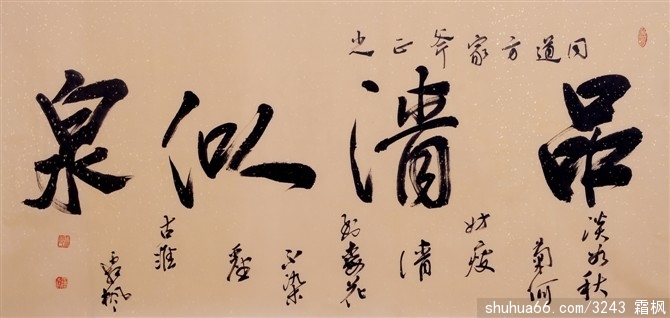 同道方家斧正
品清似泉
淡如秋
菊何
妨瘦
清
到梅花
不染
塵
古淮
霜枫
shuhua66.com/3243 霜枫